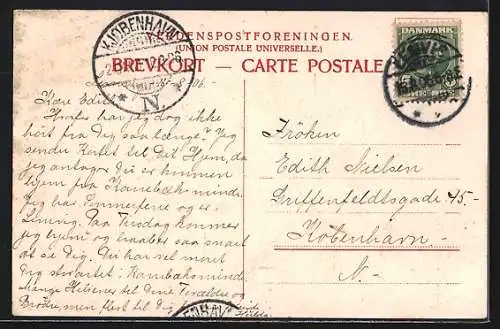 VERDENSPOSTFORENINGEN.
(UNION POSTALE UNIVERSELLE.)
BREVKORT — CARTE POSTALE
KJØBENHAVN
DANMARK
N
8 - 06.
Kære Edith
Hvorfor har jeg dog ikke
hørt fra Dig saa længe? Jeg
sender Kortet til Dit Hjem, da
jeg antager Du er kommen
hjem fra
Jeg har Sommerferie og er i
Lemvig. Paa Tirsdag kommer
jeg hjem og haaber saa snart
at se Dig. Du har vel moret
Dig
Mange Hilsener til Dine Forældre og
Brødre, men flest til Dig
Fröken
Edith Nielsen
Griffenfeldtsgade 45.-
København
N.-